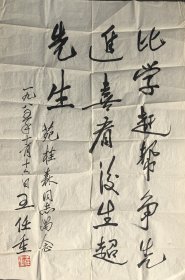 比学赶帮争先
進喜看後生超
先生
桂森同志留念
一九八五年十月十六日王任重